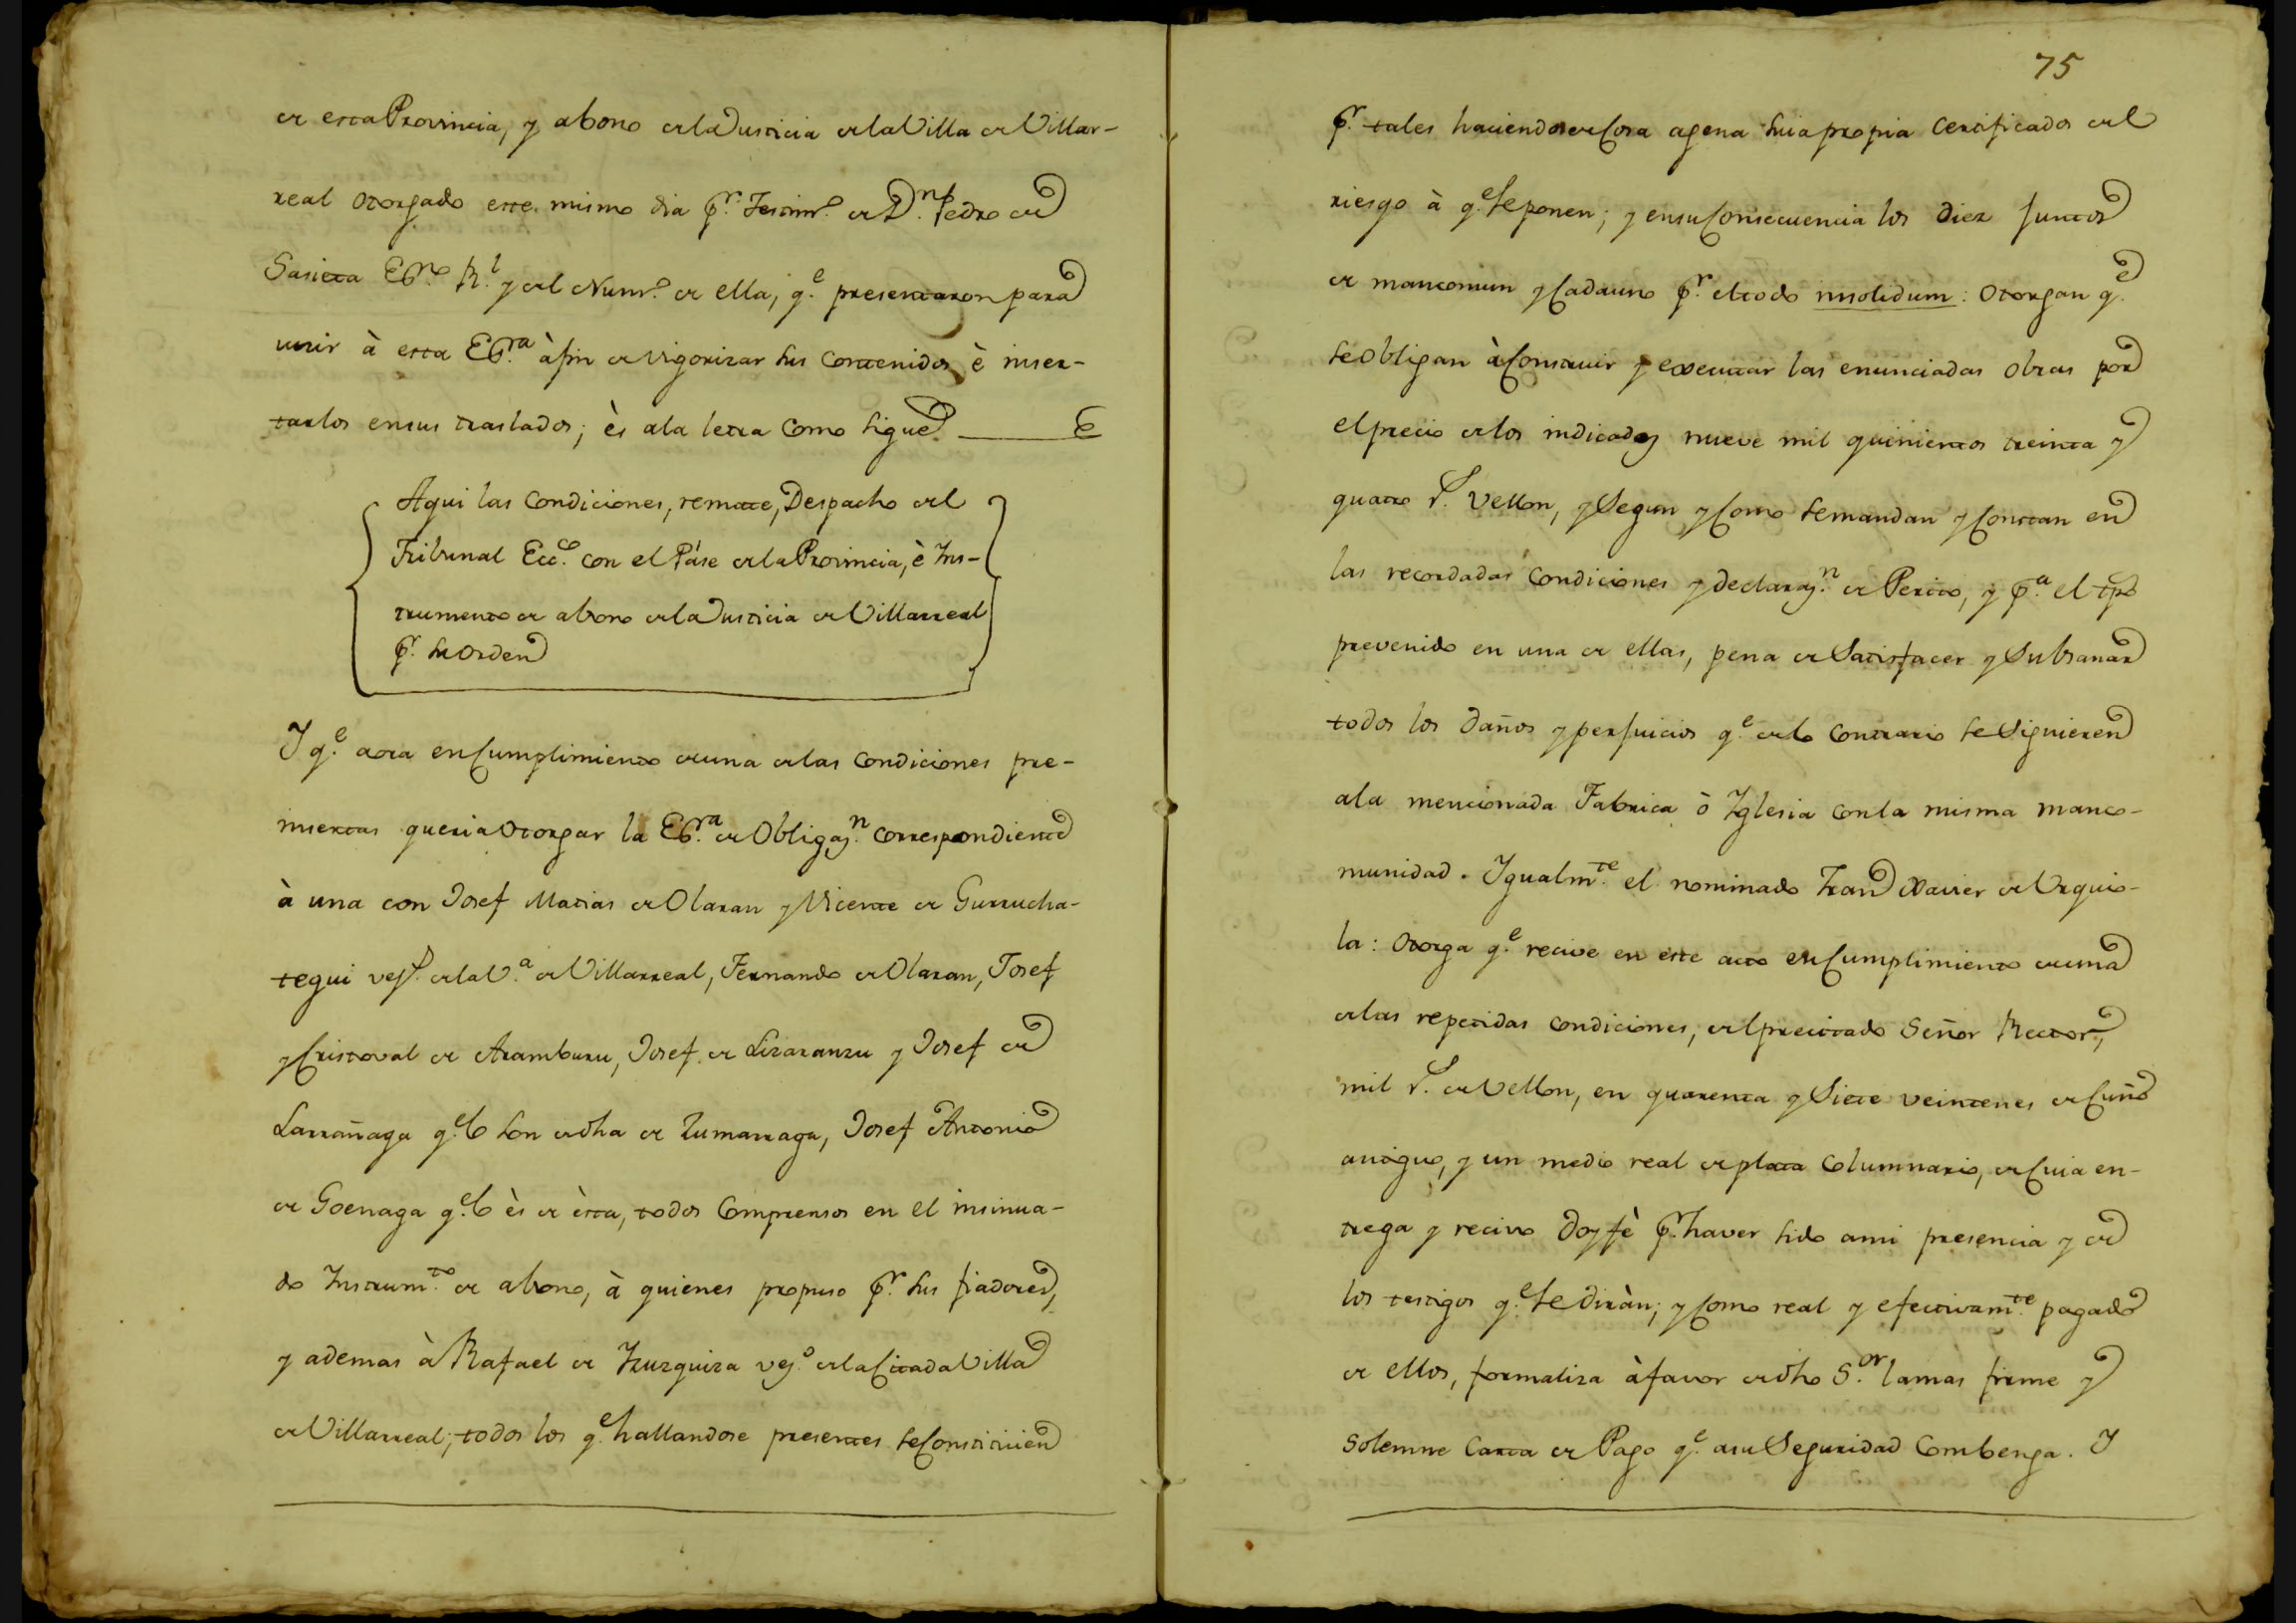 de esta Provincia, y abono de la Justicia de la Villa de Villar-
real otorgado este mismo dia pr. Testimo. de Dn. Pedro de
Sasieta Esno. Rl. y del Numo. de ella, qe. presentaron para
unir à esta Esra. àfin de vigorizar sus contenidos, è inser-
tarlos en sus traslados; ès ala letra como sigue
Aqui las Condiciones, remate, Despacho del
Tribunal Ecco. con el Páse de la Provincia, è Ins-
trumento de abono de la Justicia de Villarreal
pr. su orden
Y qe. aora en Cumplimiento de una de las Condiciones pre-
insertas queria otorgar la Esra. de Obligazn. correspondiente
à una con Josef Matias de Olaran y Vicente de Gurrucha-
tegui vezs. de la Va. de Villarreal, Fernando de Olaran, Josef
y Cristoval de Aramburu, Josef de Lizaranzu y Josef de
Larrañaga qe. lo son de dha de Zumarraga, Josef Antonio
de Goenaga qe. lo ès de èsta, todos Comprensos en el insinua-
do Instrumto. de abono, à quienes propuso pr. sus fiadores,
y ademas à Rafael de Yzurquiza vezo. de la Citada Villa
de Villarreal; todos los qe. hallandose presentes se Constituien
75
pr. tales haciendo de Cosa agena suia propia Certificados del
riesgo à qe. se ponen; y en su Consecuencia los diez juntos
de mancomun y Cada uno pr. el todo insolidum: Otorgan qe.
se obligan à Construir y executar las enunciadas obras por
el precio de los indicados nueve mil quinientos treinta y
quatro rs. vellon, y Segun y Como se mandan y Constan en
las recordadas Condiciones y declarazn. de Perito, y pa. el tpo
prevenido en una de ellas, pena de Satisfacer y Subsanar
todos los daños y perjuicios qe. de lo Contrario se Siguieren
ala mencionada Fabrica ò Yglesia con la misma manco-
munidad. Ygualmte. el nominado Fran Xavier de Urquio-
la: Otorga qe. recive en este acto en Cumplimiento de una
de las repetidas Condiciones, del precitado Señor Rector,
mil rs. de Vellon, en quarenta y Siete veintenes de Cuño
antiguo, y un medio real de plata Columnario, de Cuia en-
trega y recivo doy fè pr. haver sido a mi presencia y de
los testigos qe. se diràn; y Como real y efectivamte. pagado
de ellos, formaliza àfavor de dho Sor. la mas firme y
Solemne Carta de Pago qe. a su Seguridad Combenga. Y